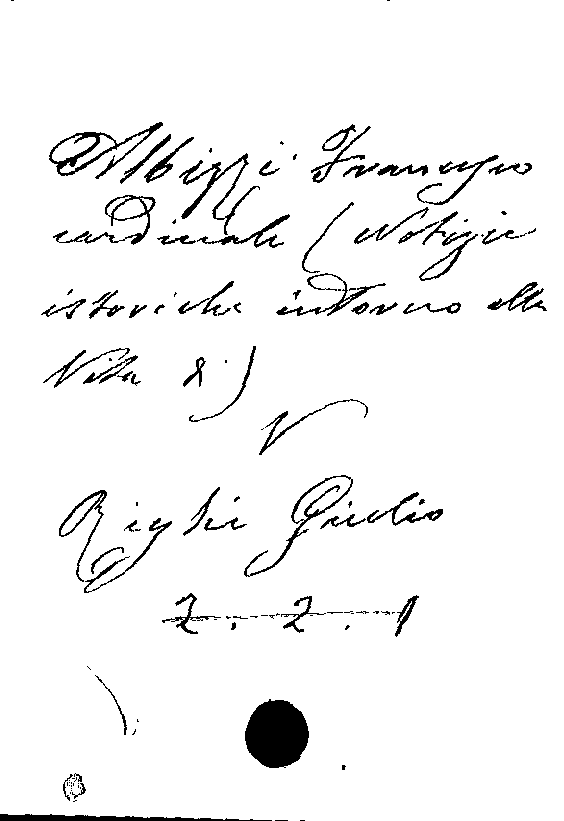 Albizzi Francesco
cardinale (Notizie
istoriche intorno alla
Vita &)
V
Righi Giulio
2. 2. 1